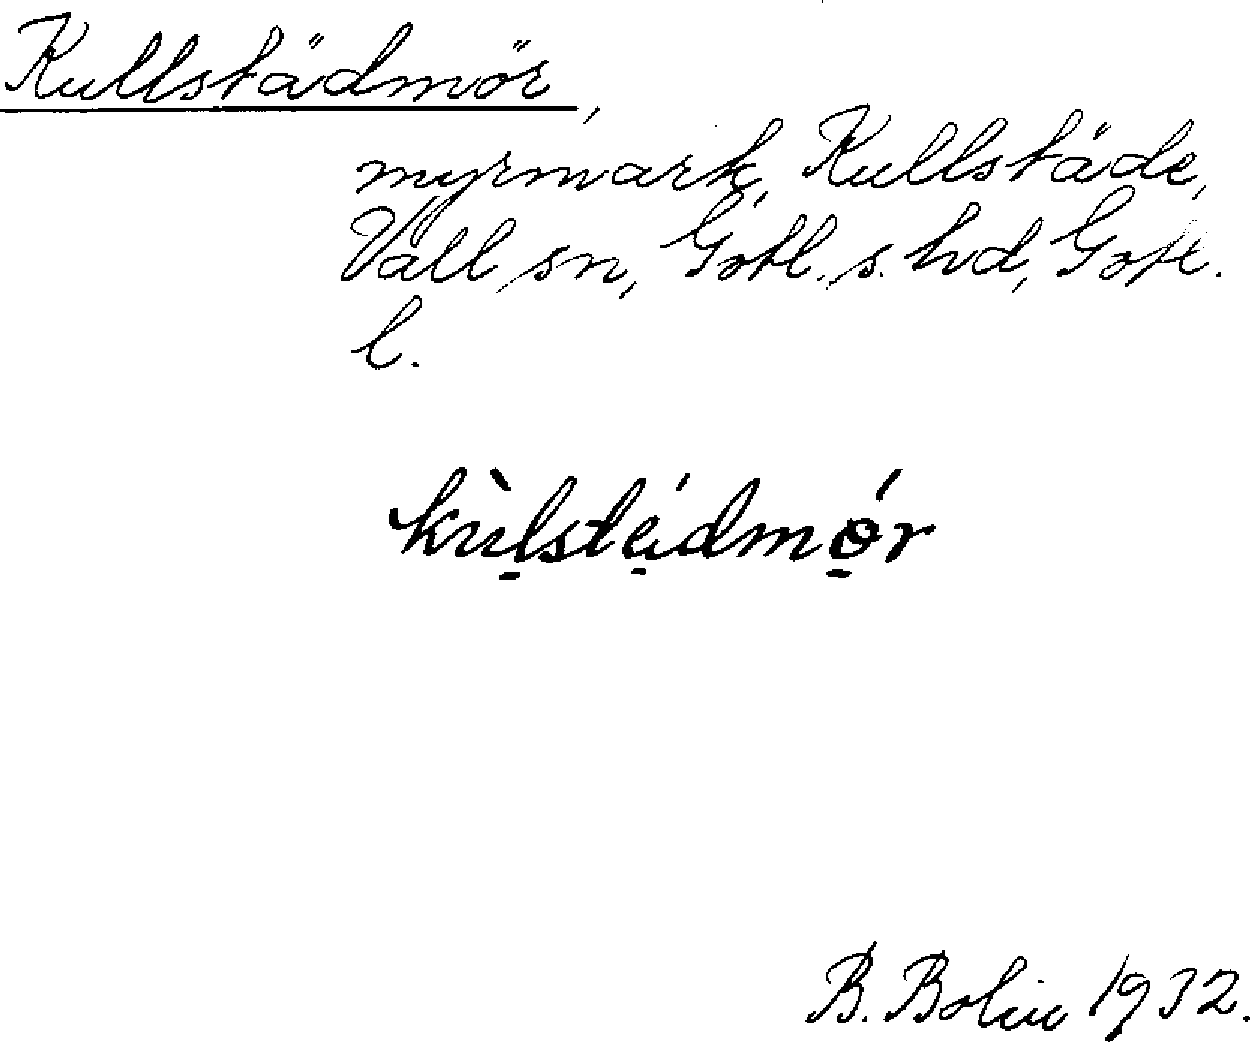 Kullstädmör,
myrmark, Kullstäde,
Vall sn, Gotl. s. hd, Gotl.
l.
kùlstéidmǿr
B. Bolin 1932.